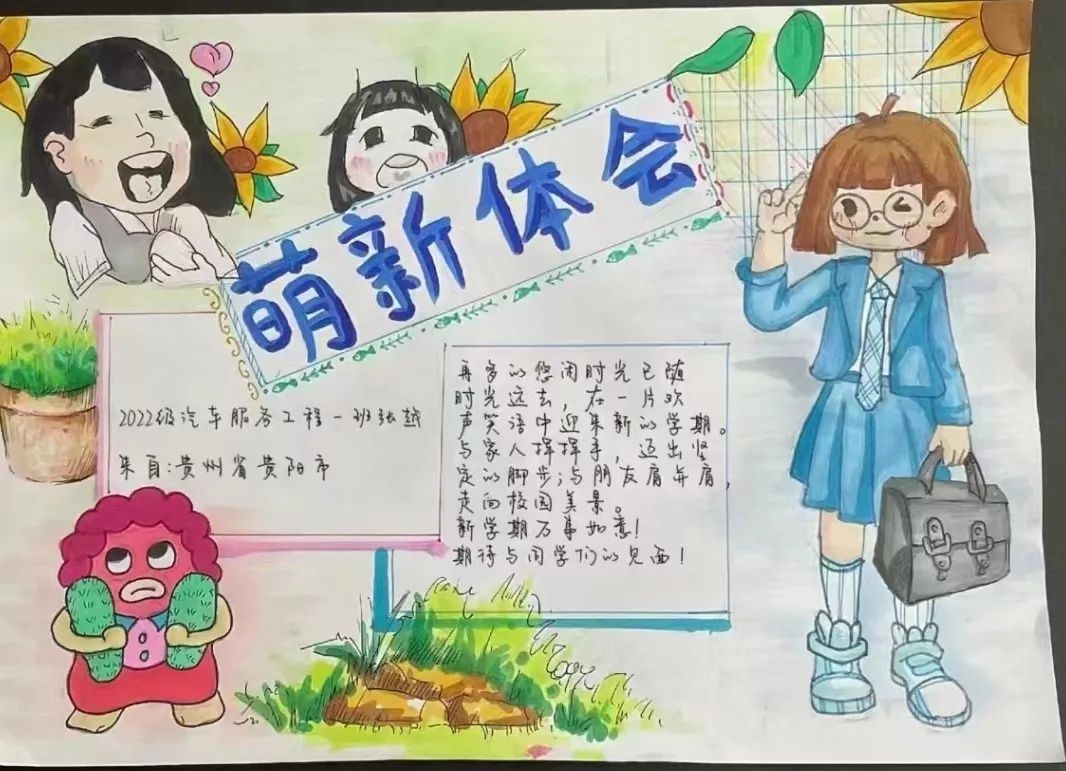 萌新体会
2022级汽车服务工程一班张越
来自:贵州省贵阳市
再多的悠闲时光已随
时光远去，在一片欢
声笑语中迎来新的学期。
与家人挥挥手，迈出坚
定的脚步;与朋友肩并肩，
走向校园美景。
新学期万事如意!
期待与同学们的见面!